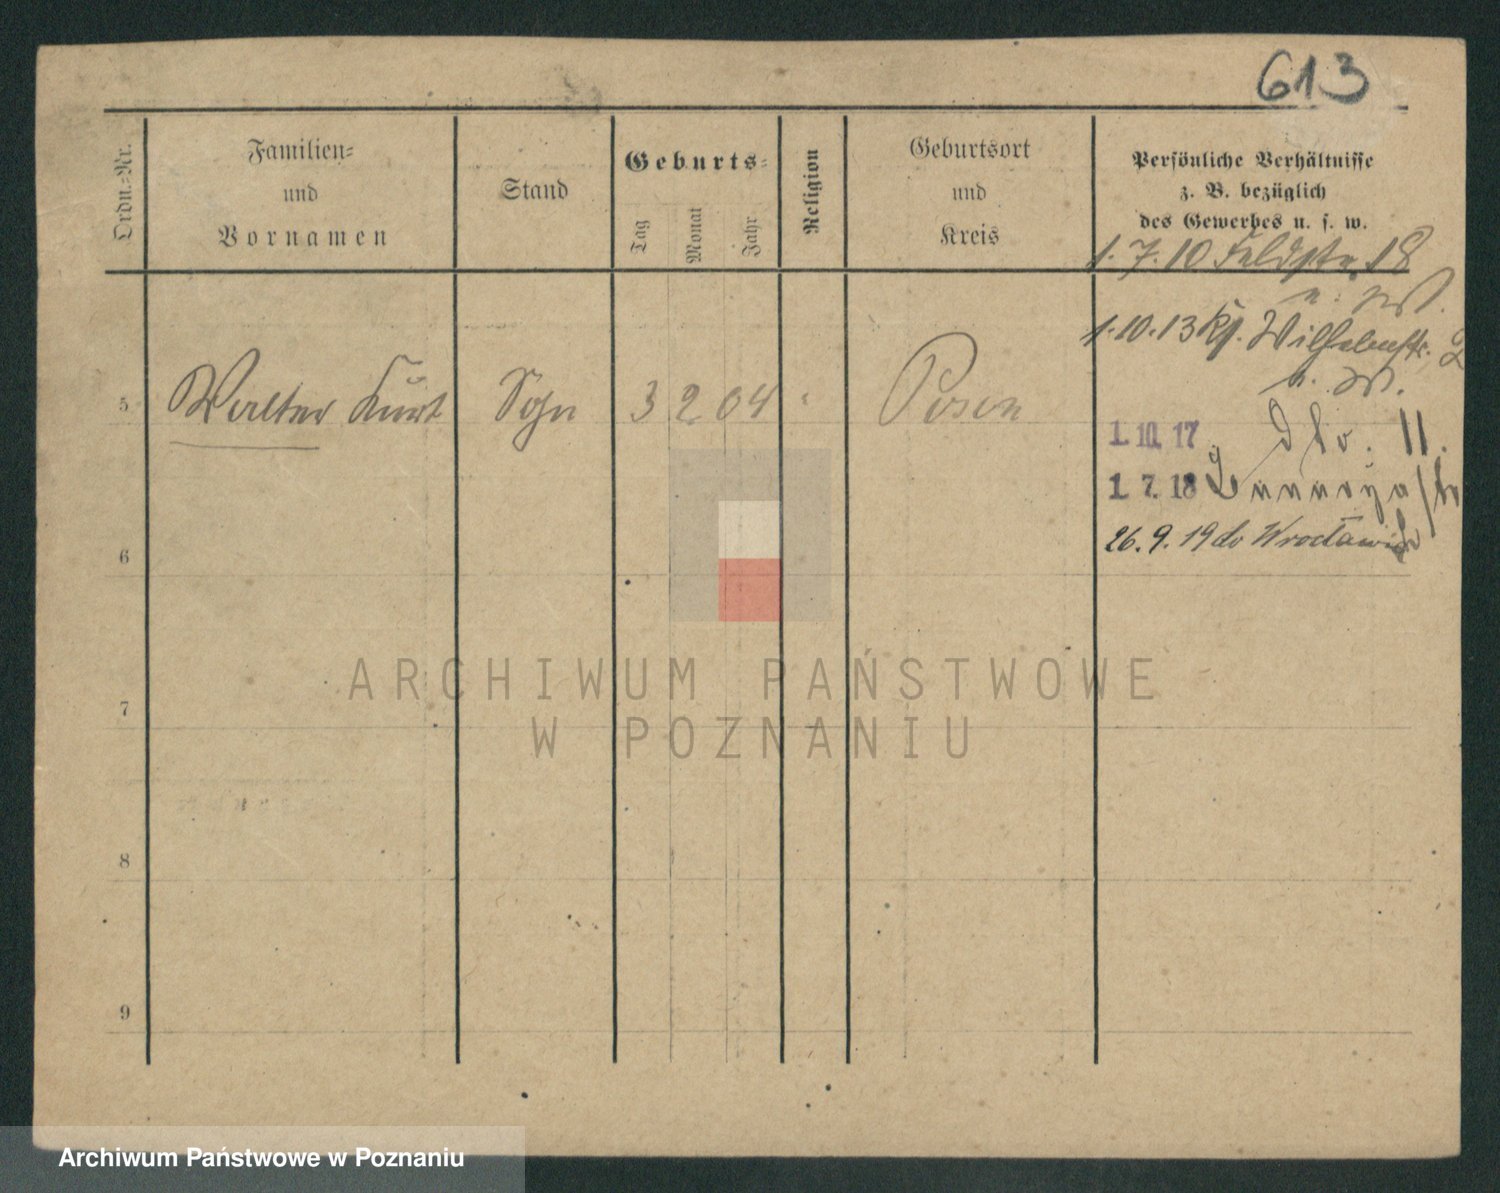 613
Ordn.-Nr.
Familien-
und
Vornamen
Stand
Geburts-
Tag
Monat
Jahr
Religion
Geburtsort
und
Kreis
Persönliche Verhältnisse
z. B. bezüglich
des Gewerbes u. s. w.
1.7.10 Feldstr. 18
1.10.13 Wilhelmstr. 2
5 Walter Kurt Sohn 3 2 04 Posen
1.10.17 dto. 11.
1.7.18
26.9.19 do Wrocławia
6
7
8
9
ARCHIWUM PAŃSTWOWE
W POZNANIU
Archiwum Państwowe w Poznaniu